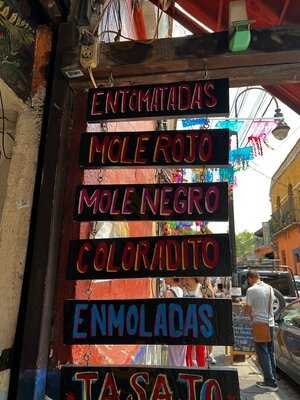 ENTOMATADAS
MOLE ROJO
MOLE NEGRO
COLORADITO
ENMOLADAS
TASAJO